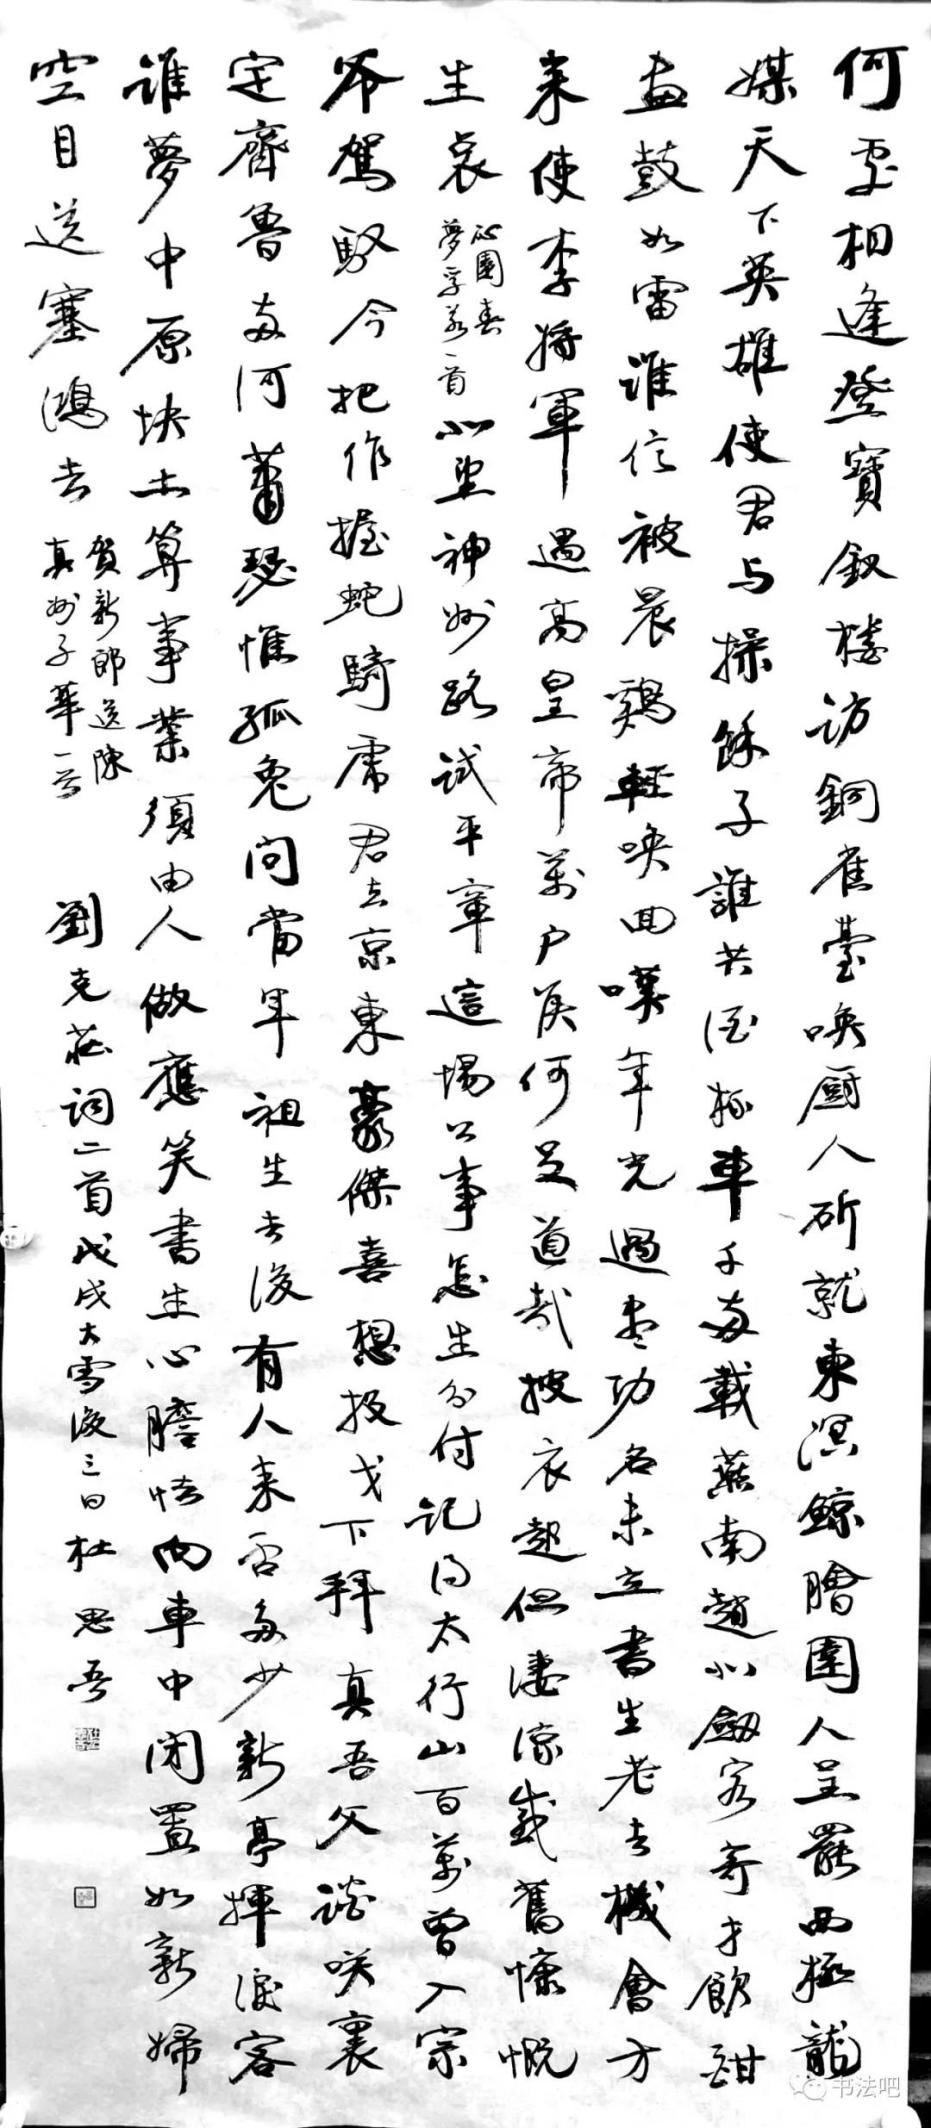 何處相逢登寶釵樓訪銅雀臺喚厨人斫就東溟鯨膾圉人呈罷西極龍
媒天下英雄使君與操餘子誰共酒杯車千兩載燕南趙北劒客奇才飲酣
畫鼓如雷誰信被晨鷄輕喚回嘆年光過盡功名未立書生老去機會方
來使李將軍遇高皇帝萬户侯何足道哉披衣起但淒涼感舊慷慨
生哀
沁園春
夢孚若一首
北望神州路試平章這場公事怎生分付記得太行山百萬曾入宗
爷駕馭今把作握蛇騎虎君去京東豪傑喜想投戈下拜真吾父談笑裏
定齊魯兩河蕭瑟惟狐兔問當年祖生去後有人來否多少新亭揮淚客
誰夢中原块土算事業須由人做應笑書生心膽怯向車中閉置如新婦
空目送塞鴻去
贺新郎送陳
真州子華一首
劉克莊詞二首戊戌大雪後三日杜思吾
书法吧